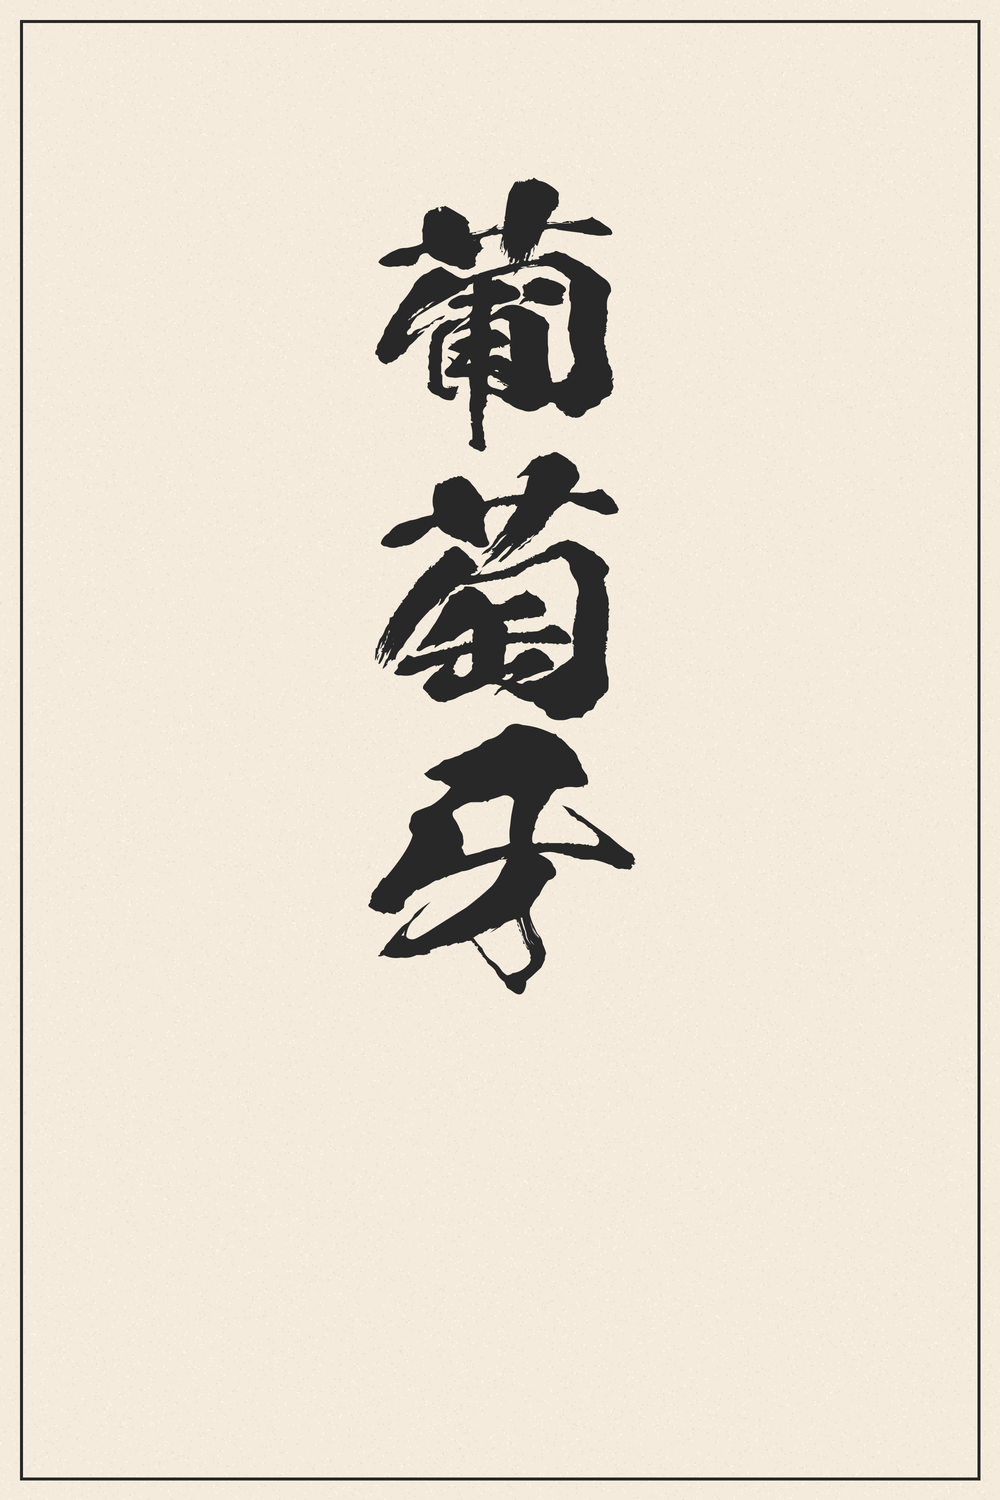 葡萄牙